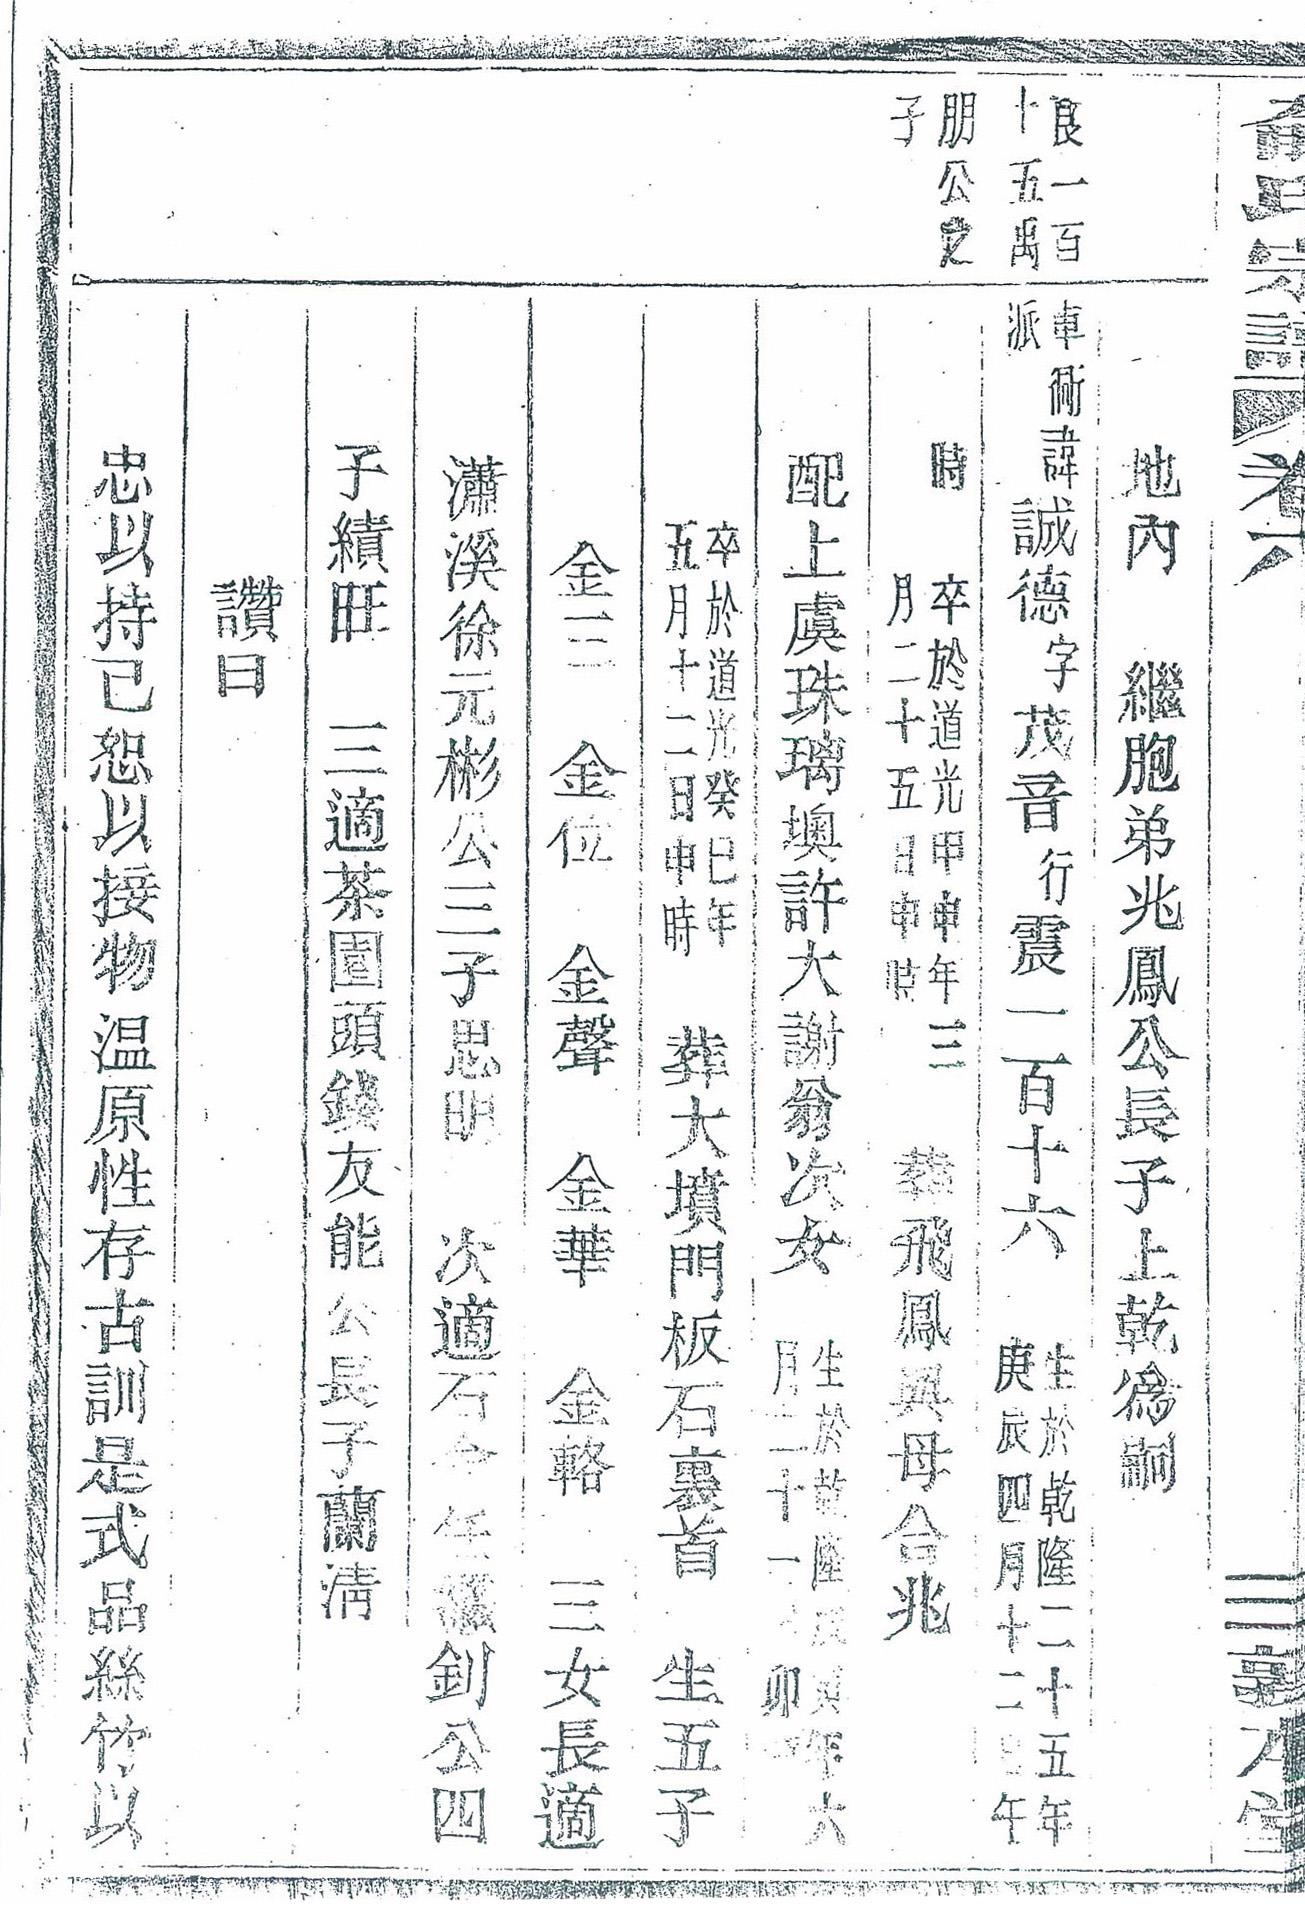 氏宗譜 卷六
地內 繼胞弟兆鳳公長子上乾為嗣
良一百
十五禹
朋公之
子
車衖諱誠德字茂音行震一百十六 生於乾隆二十五年
派 庚辰四月十二日午
時 卒於道光甲申年三
月二十五日申時 葬飛鳳與母合兆
配上虞珠璃墺許大謝翁次女 生於乾隆 寅年六
月二十一 卯
卒於道光癸巳年
五月十二日申時 葬大墳門板石裏首 生五子
金三 金位 金聲 金華 金輅 三女長適
瀟溪徐元彬公三子思明 次適石 釗公四
子績旺 三適茶園頭錢友能公長子蘭清
讚曰
忠以持已恕以接物温原性存古訓是式品絲竹以